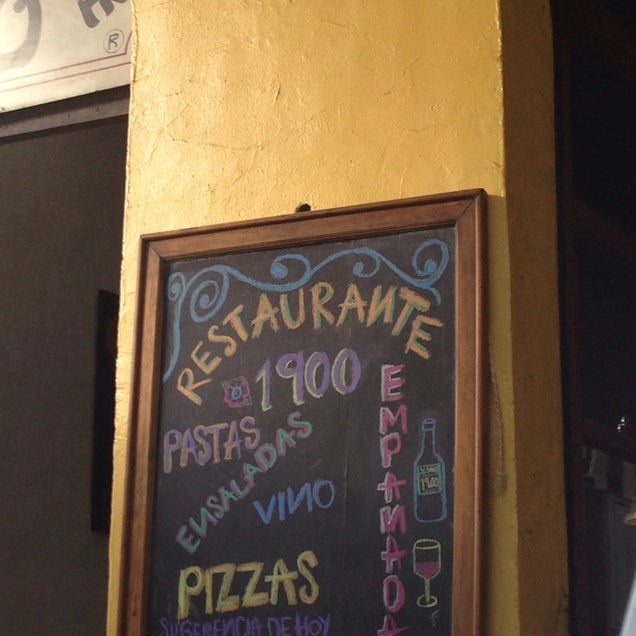 ®
RESTAURANTE
1900
PASTAS
ENSALADAS
VINO
EMPANADA
1900
PIZZAS
SUGERENCIA DE HOY